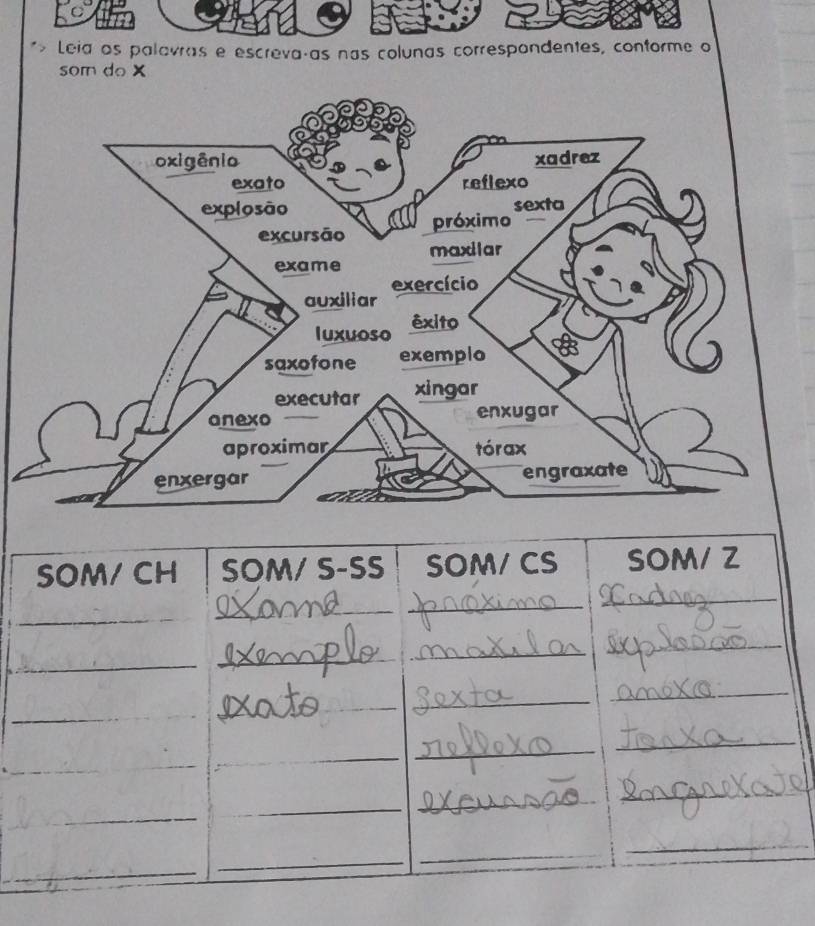 Leia as palavras e escreva-as nas colunas correspondentes, conforme o
som do X
oxigênio
xadrez
exato
reflexo
explosão
sexta
próximo
excursão
maxilar
exame
exercício
auxiliar
luxuoso
êxito
saxofone
exemplo
executar
xingar
anexo
enxugar
aproximar
tórax
enxergar
engraxate
SOM/ CH SOM/ S-SS SOM/ CS SOM/ Z
exame próximo xadrez
exemplo maxilar explosão
exato sexta anexo
reflexo
excursão engrexate